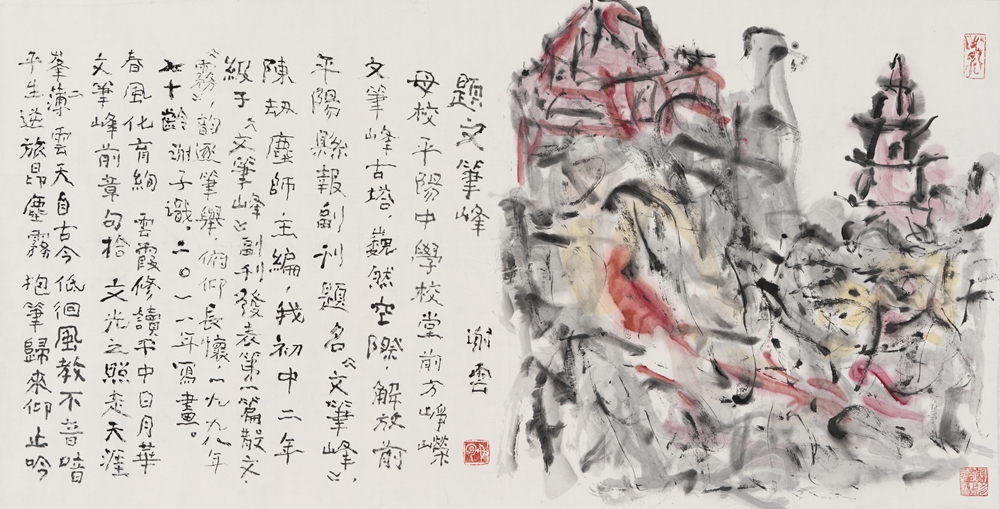 題文筆峰 謝雲
母校平陽中學校堂前方崢嶸
文筆峰古塔巍然空際，解放前
平陽縣報副刊題名《文筆峰》，
陳劫塵師主編，我初中二年
級于《文筆峰》副刊發表第一篇散文
《霧》，韵逐筆舉，俯仰長懷，一九九八年
七十齡謝子識。二〇一八年寫畫。
春風化育絢雲霞修讀平中日月華
文筆峰前章句拾文光之照走天涯
峯薄雲天自古今低徊風教不音喑
平生逆旅昂塵霧抱筆歸來仰止吟